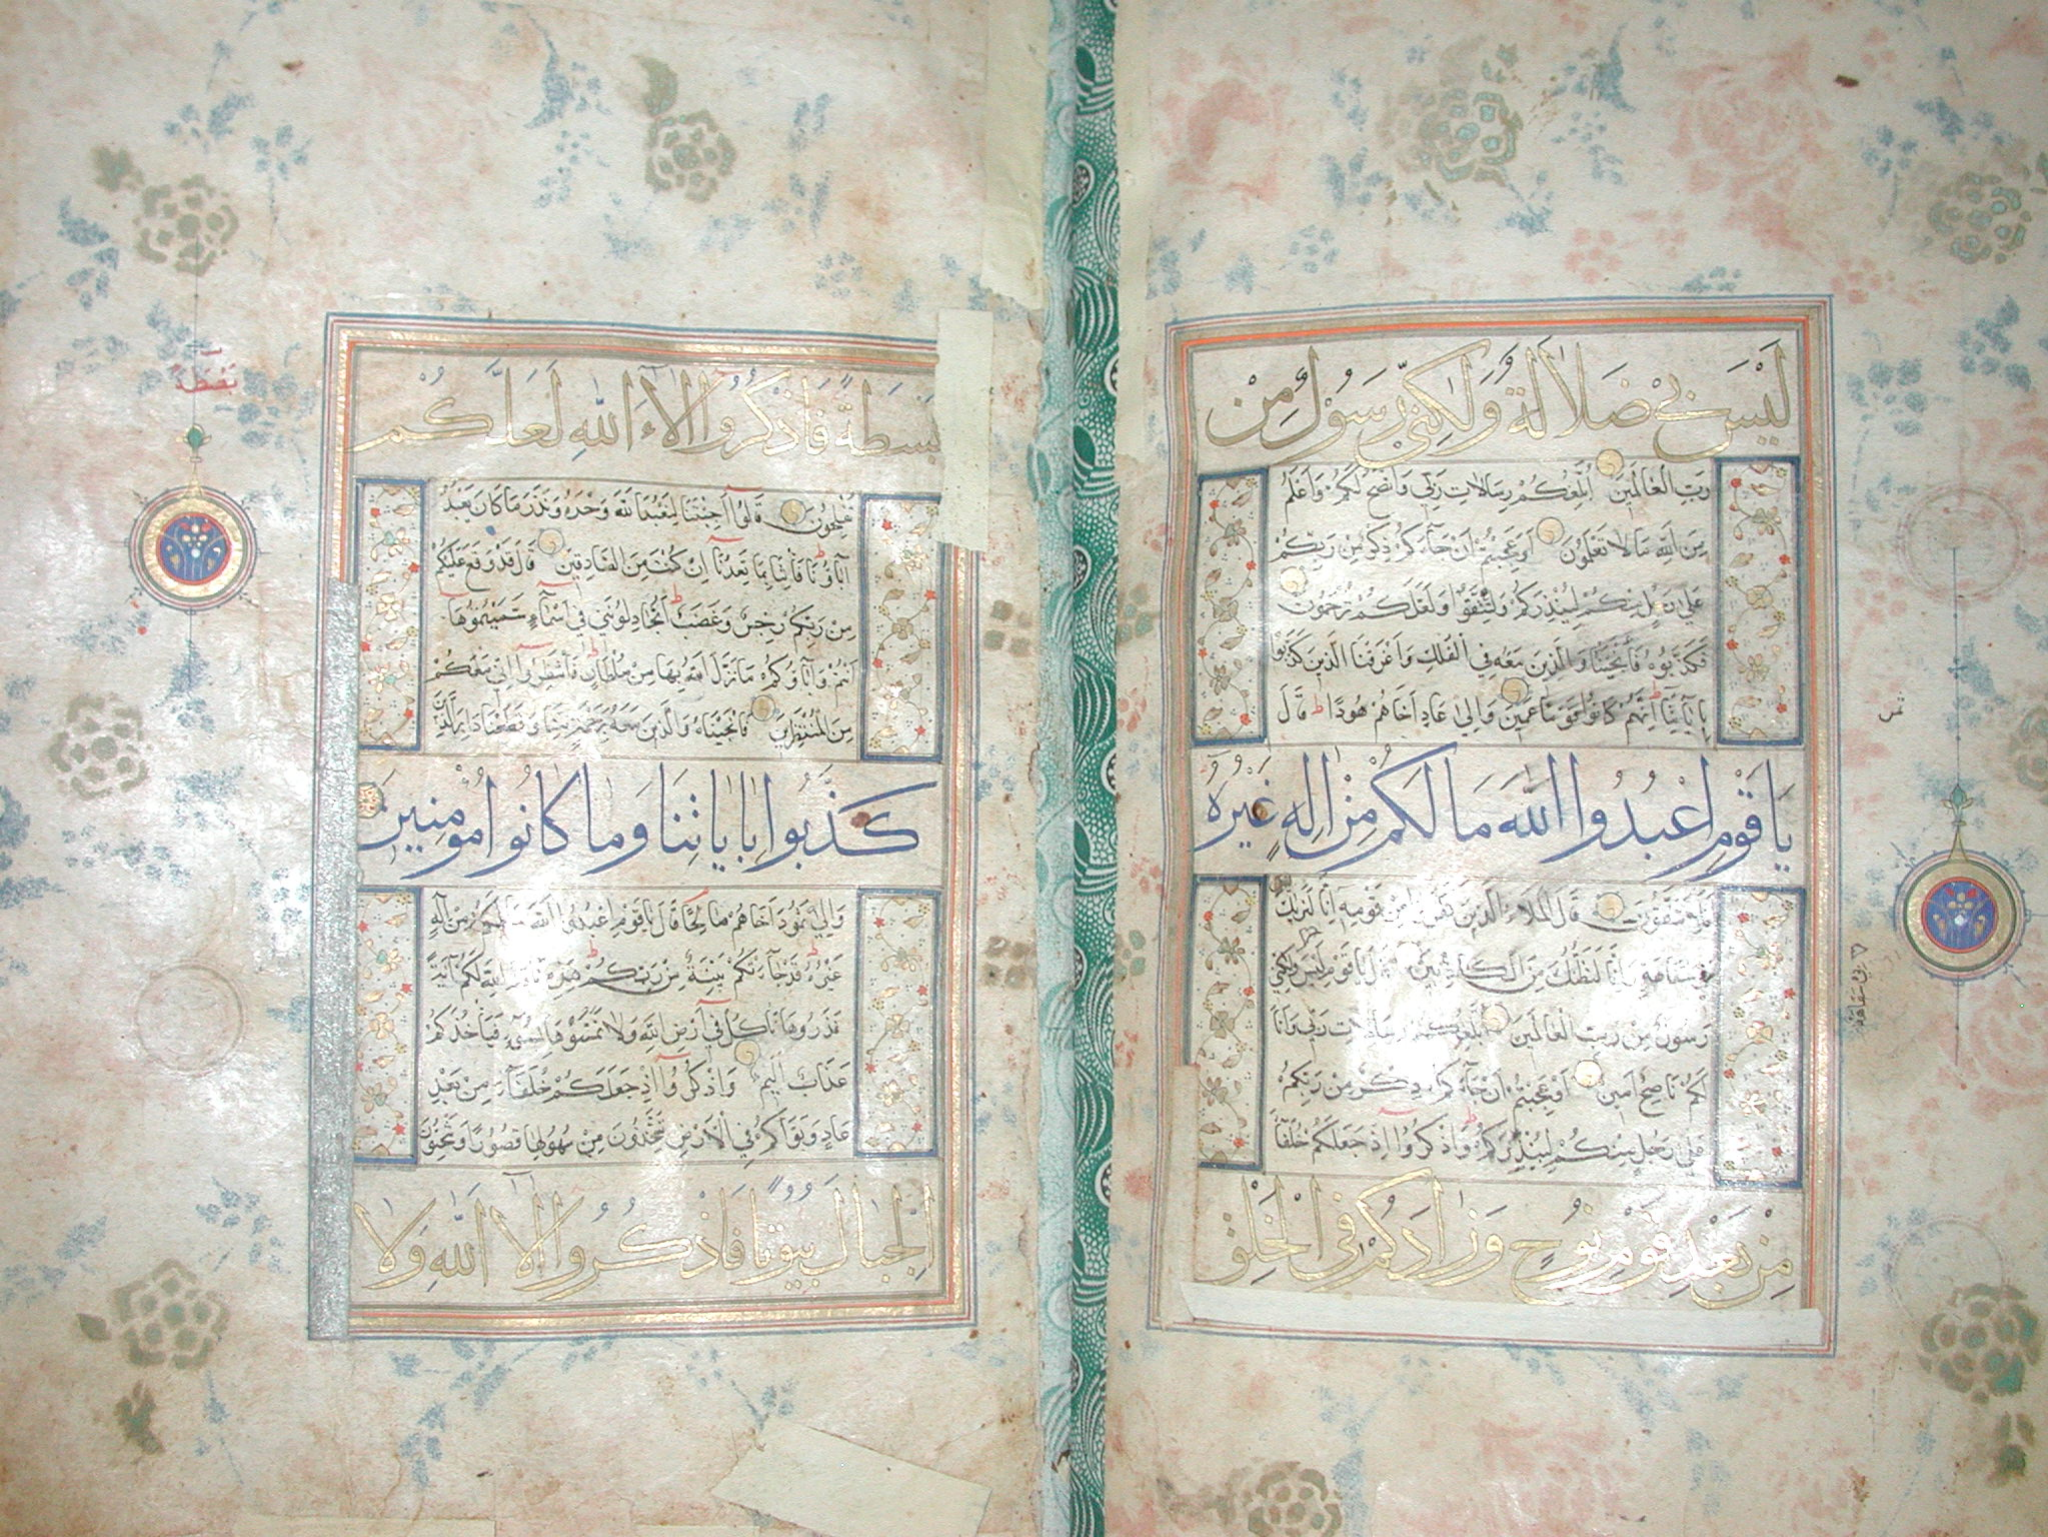 لَيْسَ بِيْ ضَلَالَةٌ وَلٰكِنِّيْ رَسُوْلٌ مِنْ
رَبِّ الْعَالَمِينَ أُبَلِّغُكُمْ رِسَالَاتِ رَبِّي وَأَنْصَحُ لَكُمْ وَأَعْلَمُ
مِنَ اللَّهِ مَا لَا تَعْلَمُونَ أَوَعَجِبْتُمْ أَنْ جَاءَكُمْ ذِكْرٌ مِنْ رَبِّكُمْ
عَلَى رَجُلٍ مِنْكُمْ لِيُنْذِرَكُمْ وَلِتَتَّقُوا وَلَعَلَّكُمْ تُرْحَمُونَ
فَكَذَّبُوهُ فَأَنْجَيْنَاهُ وَالَّذِينَ مَعَهُ فِي الْفُلْكِ وَأَغْرَقْنَا الَّذِينَ كَذَّبُوا
بِآيَاتِنَا إِنَّهُمْ كَانُوا قَوْمًا عَمِينَ وَإِلَى عَادٍ أَخَاهُمْ هُودًا ط قَالَ
يَا قَوْمِ اعْبُدُوا اللَّهَ مَا لَكُمْ مِنْ إِلَهٍ غَيْرُهُ
أَفَلَا تَتَّقُونَ قَالَ الْمَلَأُ الَّذِينَ كَفَرُوا مِنْ قَوْمِهِ إِنَّا لَنَرَاكَ
فِي سَفَاهَةٍ وَإِنَّا لَنَظُنُّكَ مِنَ الْكَاذِبِينَ قَالَ يَا قَوْمِ لَيْسَ وَلَكِنِّي
رَسُولٌ مِنْ رَبِّ الْعَالَمِينَ أُبَلِّغُكُمْ رِسَالَاتِ رَبِّي وَأَنَا
لَكُمْ نَاصِحٌ أَمِينٌ أَوَعَجِبْتُمْ أَنْ جَاءَكُمْ ذِكْرٌ مِنْ رَبِّكُمْ
عَلَى رَجُلٍ مِنْكُمْ لِيُنْذِرَكُمْ وَاذْكُرُوا إِذْ جَعَلَكُمْ خُلَفَاءَ
مِنْ بَعْدِ قَوْمِ نُوحٍ وَزَادَكُمْ فِي الْخَلْقِ
ثمن
بي سفاهة
بَصْطَةً
بَسْطَةً فَاذْكُرُوا آلَاءَ اللَّهِ لَعَلَّكُمْ
تُفْلِحُونَ قَالُوا أَجِئْتَنَا لِنَعْبُدَ اللَّهَ وَحْدَهُ وَنَذَرَ مَا كَانَ يَعْبُدُ
آبَاؤُنَا فَأْتِنَا بِمَا تَعِدُنَا إِنْ كُنْتَ مِنَ الصَّادِقِينَ قَالَ قَدْ وَقَعَ عَلَيْكُمْ
مِنْ رَبِّكُمْ رِجْسٌ وَغَضَبٌ ط أَتُجَادِلُونَنِي فِي أَسْمَاءٍ سَمَّيْتُمُوهَا
أَنْتُمْ وَآبَاؤُكُمْ مَا نَزَّلَ اللَّهُ بِهَا مِنْ سُلْطَانٍ ط فَانْتَظِرُوا إِنِّي مَعَكُمْ
مِنَ الْمُنْتَظِرِينَ فَأَنْجَيْنَاهُ وَالَّذِينَ مَعَهُ بِرَحْمَةٍ مِنَّا وَقَطَعْنَا دَابِرَ الَّذِينَ
كَذَّبُوا بِآيَاتِنَا وَمَا كَانُوا مُؤْمِنِينَ
وَإِلَى ثَمُودَ أَخَاهُمْ صَالِحًا قَالَ يَا قَوْمِ اعْبُدُوا اللَّهَ مَا لَكُمْ مِنْ إِلَهٍ
غَيْرُهُ ط قَدْ جَاءَتْكُمْ بَيِّنَةٌ مِنْ رَبِّكُمْ ط هَذِهِ نَاقَةُ اللَّهِ لَكُمْ آيَةً
فَذَرُوهَا تَأْكُلْ فِي أَرْضِ اللَّهِ وَلَا تَمَسُّوهَا بِسُوءٍ فَيَأْخُذَكُمْ
عَذَابٌ أَلِيمٌ وَاذْكُرُوا إِذْ جَعَلَكُمْ خُلَفَاءَ مِنْ بَعْدِ
عَادٍ وَبَوَّأَكُمْ فِي الْأَرْضِ تَتَّخِذُونَ مِنْ سُهُولِهَا قُصُورًا وَتَنْحِتُونَ
الْجِبَالَ بُيُوتًا فَاذْكُرُوا آلَاءَ اللَّهِ وَلَا